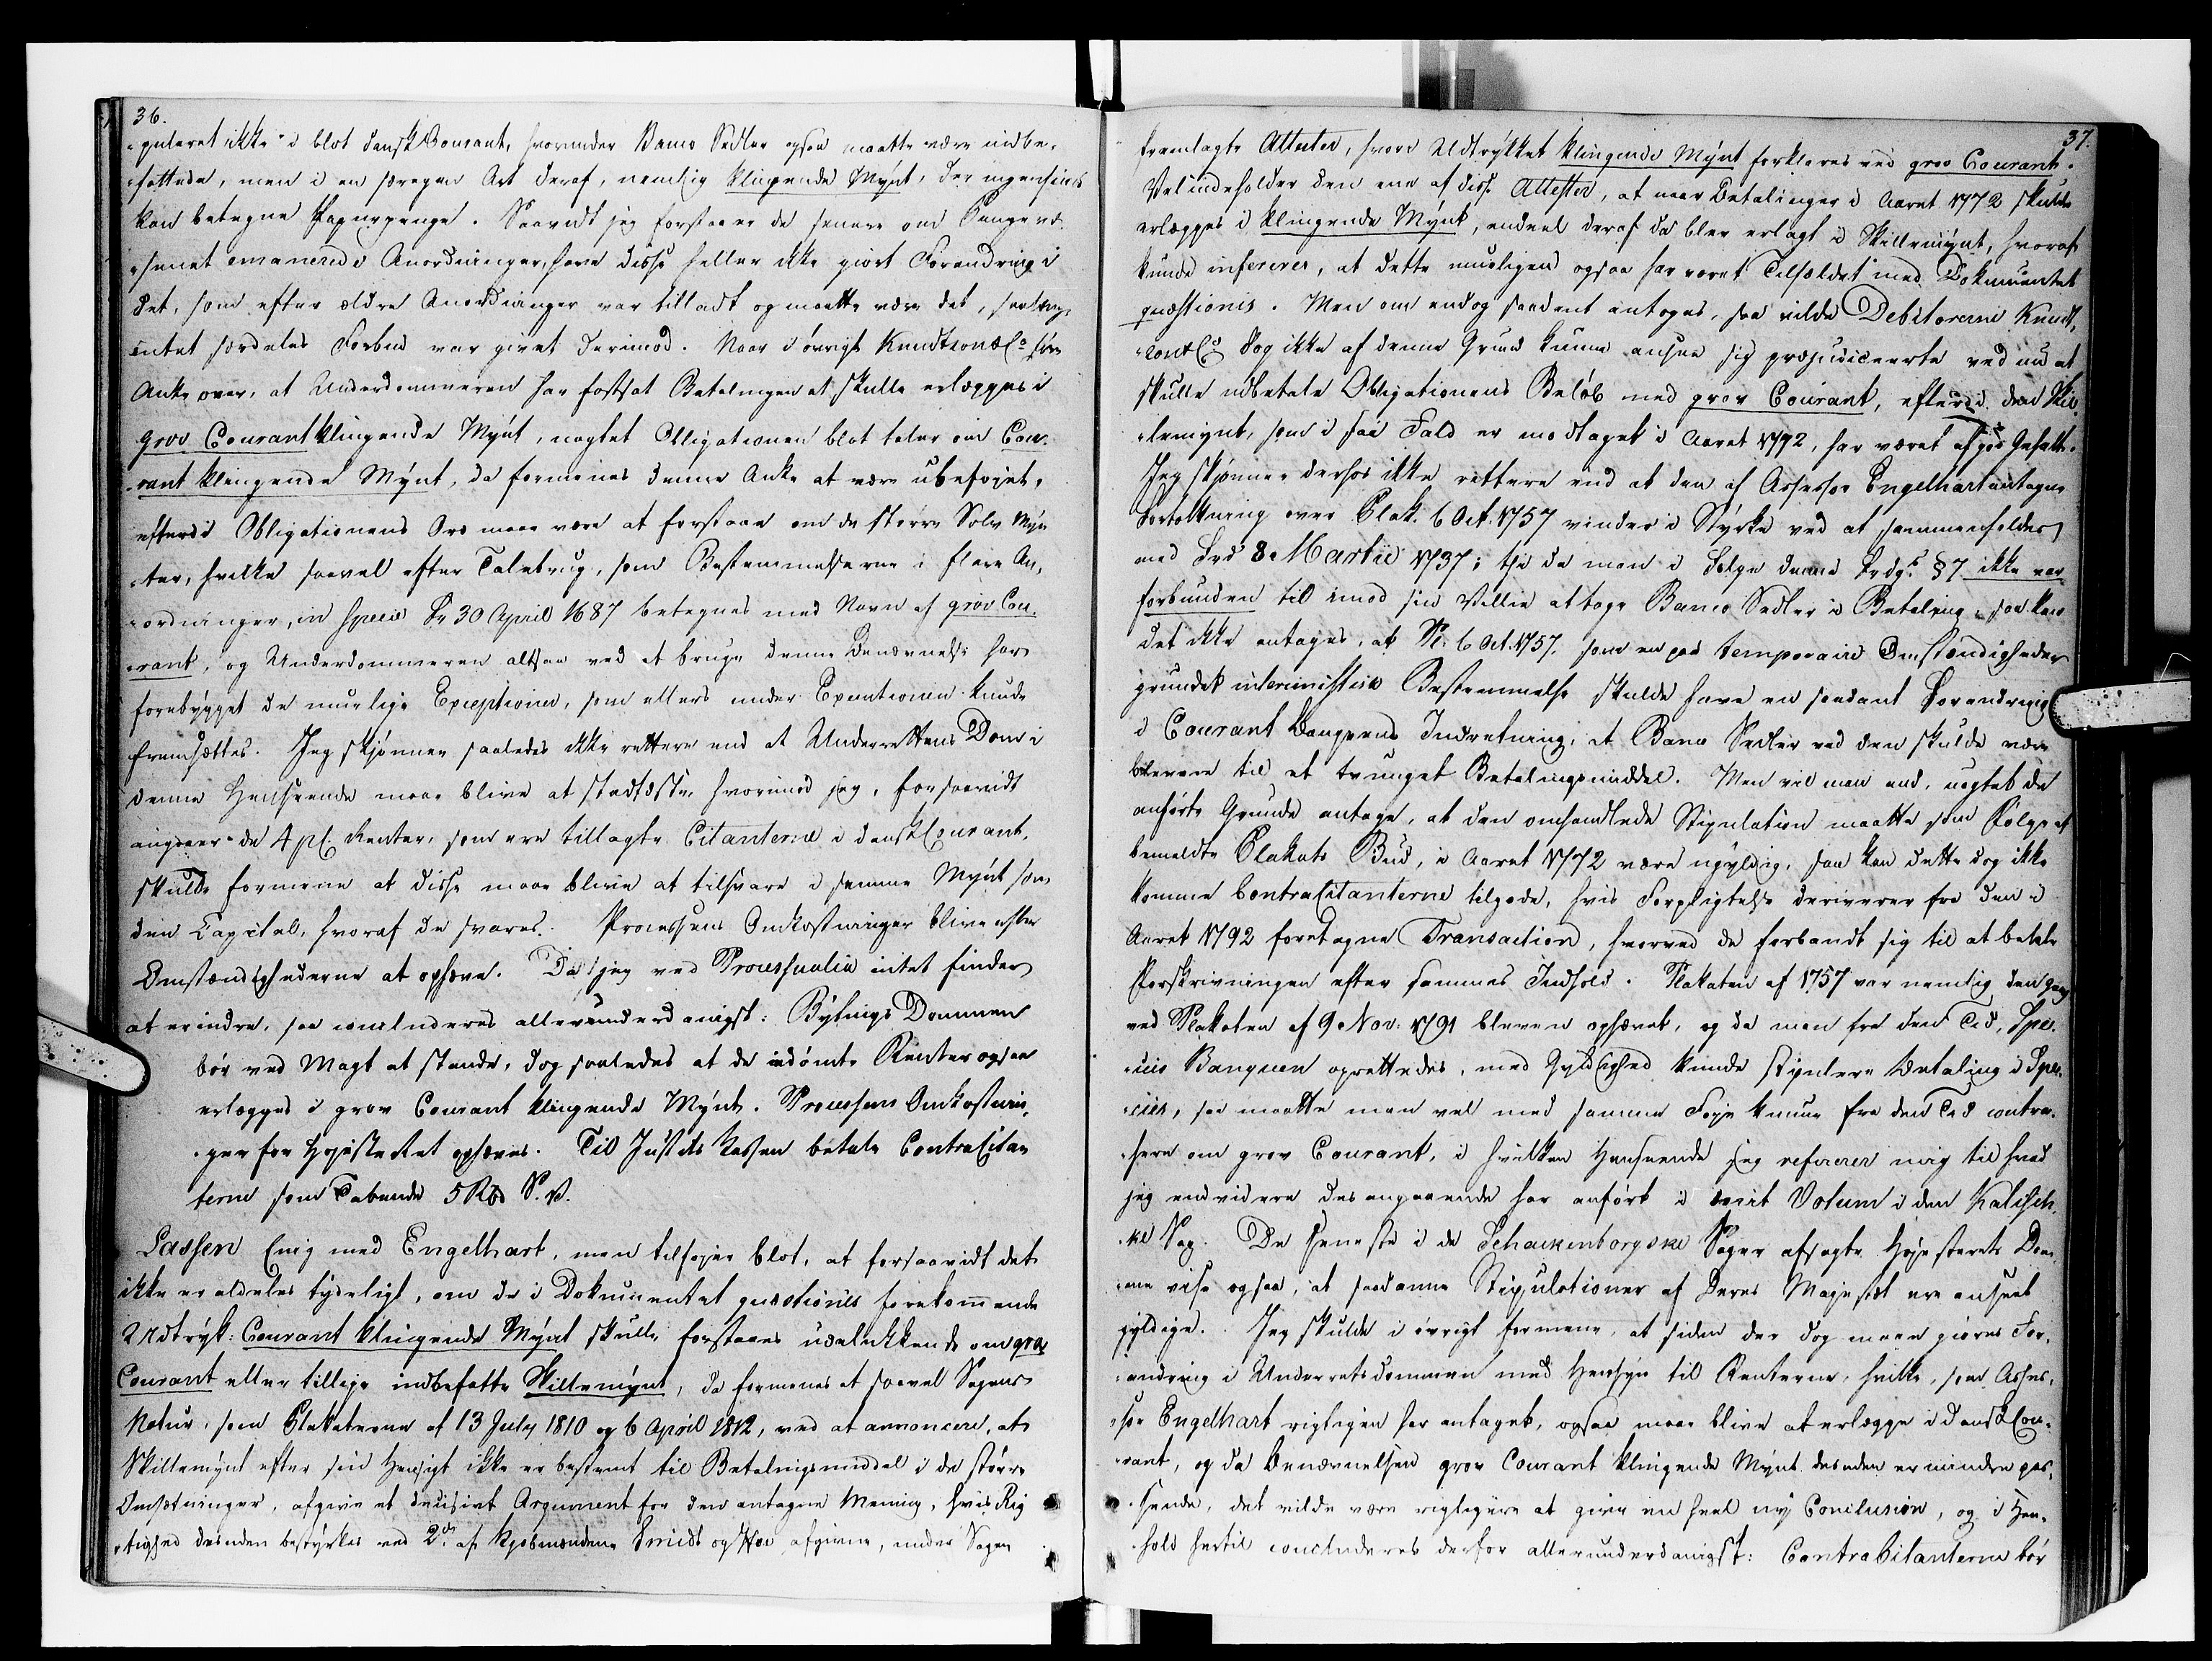 36.
puleret ikke i blot dansk Courant, hvorunder Banco Sedler ogsaa maatte være indbe-
fattede, men i en særegen Art deraf, nemlig klingende Mynt, der ingensinde
kan betegne Papirpenge. Saavidt jeg forstaaer de senere om Pengevæ-
senet emanerede Anordninger, have disse heller ikke giort Forandring i
det, som efter ældre Anordninger var tilladt og maatte være det, saalænge
intet særdeles Forbud var givet derimod. Naar i øvrigt Knudtzon & Co. føre
Anke over, at Underdommeren har fastsat Betalingen at skulle erlægges i
grov Courant klingende Mynt, uagtet Obligationen blot taler om Cou-
rant klingende Mynt, da formenes denne Anke at være ubeføjet,
efterdi Obligationens Ord maae være at forstaae om de større Sølv Myn-
ter, hvilke saavel efter Talebrug, som Bestemmelserne i flere An-
ordninger, in specie Fr 30 April 1687 betegnes med Navn af grov Cou-
rant, og Underdommeren altsaa ved at bruge denne Benævnelse har
forebygget de muelige Exceptioner, som ellers under Executionen kunde
fremsættes. Jeg skjønner saaledes ikke rettere end at Underrettens Dom i
denne Henseende maae blive at stadfæste, hvorimod jeg, forsaavidt
angaaer de 4 pC. Renter, som ere tillagte Citanterne i dansk Courant,
skulde formene at disse maae blive at tilsvare i samme Mynt som
den Capital, hvoraf de svares. Processens Omkostninger blive efter
Omstændighederne at ophæve. Da jeg ved Processualia intet finder
at erindre, saa concluderes allerunderdanigst: Bytings Dommen
bør ved Magt at stande, dog saaledes at de idømte Renter ogsaa
erlægges i grov Courant klingende Mynt. Processens Omkostnin-
ger for Højesteret ophæves. Til Justits Kassen betale ContraCitan
terne som Tabende 5 Rbd S. V.
Lassen Enig med Engelhart, men tilføjer blot, at forsaavidt det
ikke er aldeles tydeligt, om de i Dokumentet quæstionis forekommende
Udtryk: Courant klingende Mynt skulle forstaaes udelukkende om grov
Courant eller tillige indbefatte Skillemynt, da formenes at saavel Sagens
Natur, som Plakaterne af 13 July 1810 og 6 April 1812, ved at annoncere, at
Skillemynt efter sin Hensigt ikke er bestemt til Betalingsmiddel i de større
Omsætninger, afgive et decisivt Argument for den antagne Mening, hvis Rig
tighed desuden bestyrkes ved 2de af Kjøbmændene Smidt og Hoe afgivne, under Sagen
37.
fremlagte Attester, hvori Udtrykket klingende Mynt forklares ved grov Courant.
Vel indeholder den ene af disse Attester, at naar Betalinger i Aaret 1772 skulde
erlægges i klingende Mynt, endeel deraf da blev erlagt i Skillemynt, hvoraf
kunde infereres, at dette mueligen ogsaa har været Tilfældet med Dokumentet
quæstionis. Men om endog saadant antoges, saa vilde Debitorerne Knudt-
zon & Co dog ikke af denne Grund kunne ansee sig præjudiceerte ved nu at
skulle udbetale Obligationens Beløb med grov Courant, efterdi den Skil-
lemynt, som i saa Fald er modtaget i Aaret 1792, har været af god Gehalt.
Jeg skjønner derhos ikke rettere end at den af Assessor Engelhart antagne
Fortolkning over Plak. 6 Oct. 1757 vinder i Styrke ved at sammenholdes
med Frd 8 Martii 1737; thi da man i Følge denne Frdgs § 7 ikke var
forbunden til imod sin Villie at tage Banco Sedler i Betaling, saa kan
det ikke antages, at Pl. 6 Oct. 1757, som en paa temporaire Omstændigheder
grundet interimistisk Bestemmelse skulde have en saadant Forandring
i Courant Bangvens Indretning, at Banco Sedler ved den skulde være
blevne til et tvunget Betalingsmiddel. Men vil man end, uagtet de
anførte Grunde antage, at den omhandlede Stipulation maatte som Følge af
bemeldte Plakats Bud, i Aaret 1772 være ugyldig, saa kan dette dog ikke
komme ContraCitanterne tilgode, hvis Forpligtelse deriverer fra den i
Aaret 1792 foretagne Transaction, hvorved de forbandt sig til at betale
Forskrivningen efter sammes Indhold. Plakaten af 1757 var nemlig dengang
ved Plakaten af 9 Nov: 1791 bleven ophævet, og da man fra den Tid, Spe-
cies Banqven oprettedes, med Gyldighed kunde stipulere Betaling i Spe-
cies, saa maatte man vel med samme Føje kunne fra den Tid contra-
here om grov Courant, i hvilken Henseende jeg refererer mig til hvad
jeg endvidere desangaaende har anført i mit Votum i den Kalisch-
ke Sag. De seneste i de Schackenborgske Sager afsagte Højesterets Dom-
me vise ogsaa, at saadanne Stipulationer af Deres Majestæt ere anseet
gyldige. Jeg skulde i øvrigt formene, at siden der dog maae giøres For-
andring i Underretsdommen med Hensyn til Renterne, hvilke, som Asses-
sor Engelhart rigtigen har antaget, ogsaa maae blive at erlægge i dansk Cou-
rant, og da Benævnelsen grov Courant klingende Mynt desuden er mindre pas-
sende, det vilde være rigtigere at give en heel ny Conclusion, og i Hen-
hold hertil concluderes derfor allerunderdanigst: ContraCitanterne bør